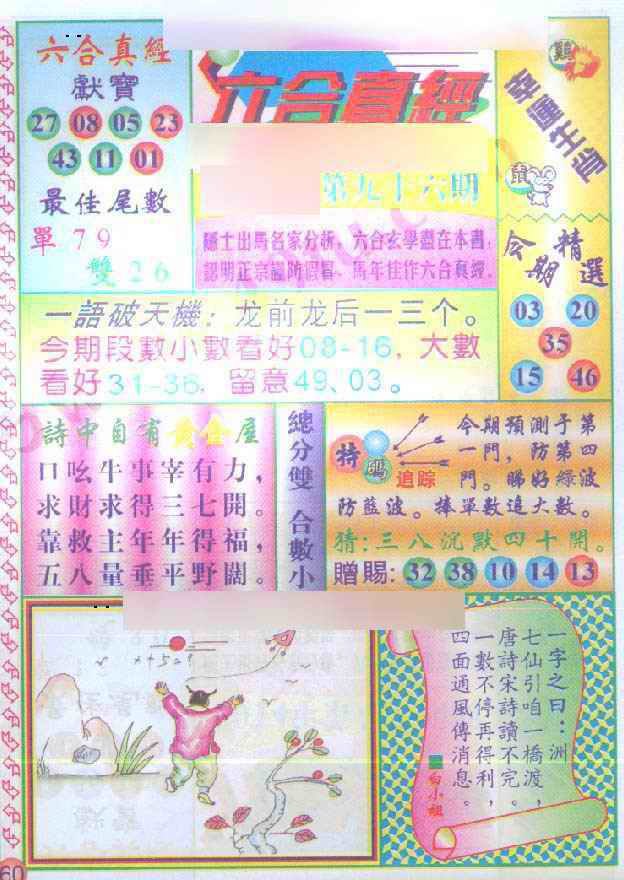 六合真經
獻寶
27 08 05 23
43 11 01
最佳尾數
單 79
雙 26
六合真經
第九十六期
隱士出馬名家分析，六合玄學盡在本書，
認明正宗謹防假冒、馬年佳作六合真經。
幸運生肖
鼠
今期精選
03 20
35
15 46
一語破天機：龙前龙后一三个。
今期段數小數看好08-16，大數
看好31-36，留意49、03。
詩中自有黃金屋
口吆牛事宰有力，
求財求得三七開。
靠救主年年得福，
五八量垂平野闊。
總分雙 合數小
特碼
追踪
今期預測于第
一門，防第四
門。睇好綠波
防藍波。捧單數追大數。
猜：三八沉默四十開。
贈賜：32 38 10 14 13
x+5=1
一字之曰：洲
七仙引咱一橋渡，
唐詩宋詩讀不完。
一數不停再得利，
四面通風傳消息。
白小姐
60